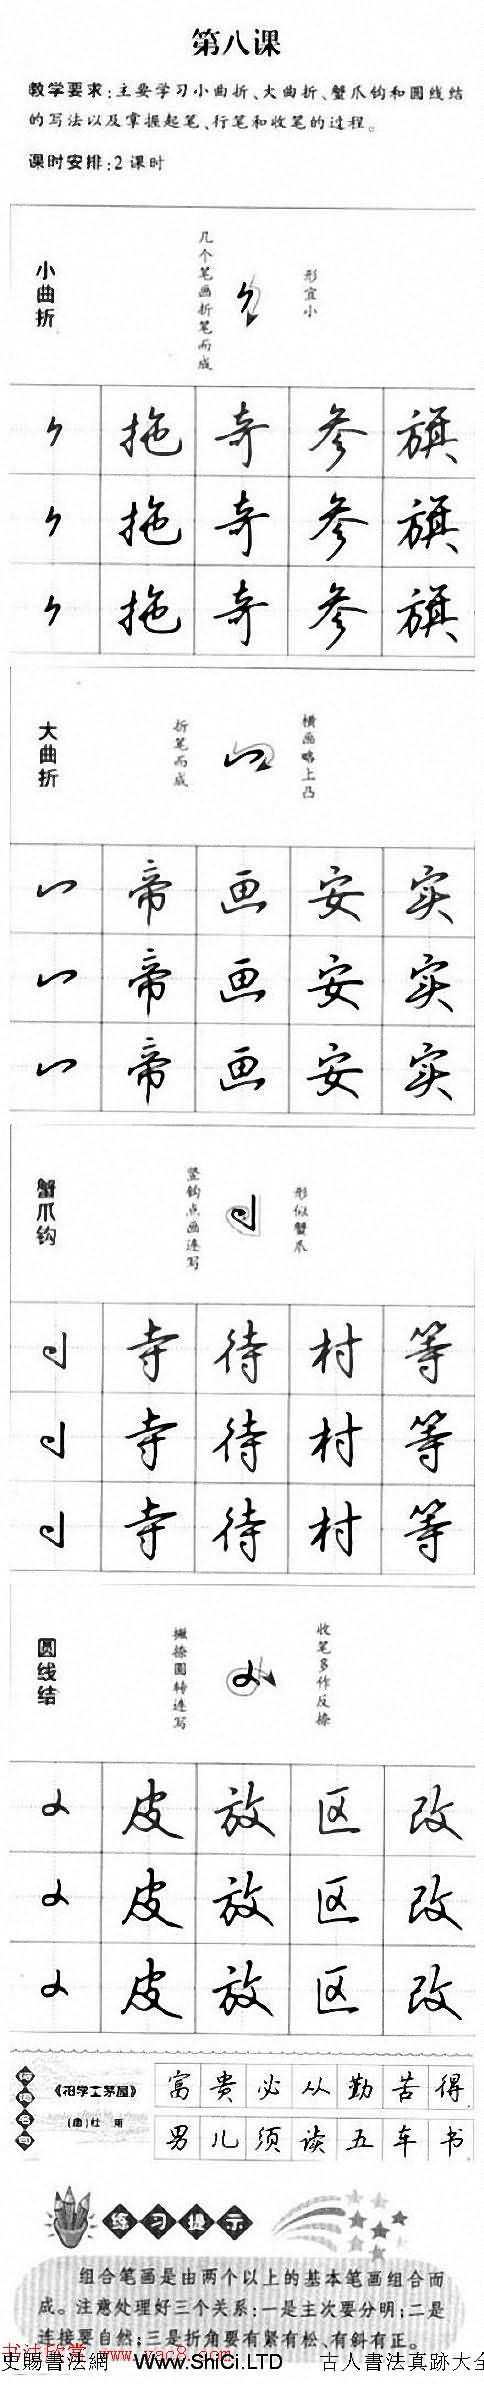 第八课
教学要求:主要学习小曲折、大曲折、蟹爪钩和圆线结
的写法以及掌握起笔、行笔和收笔的过程。
课时安排:2课时
小曲折
几个笔画折笔而成
形宜小
拖 奇 参 旗
拖 奇 参 旗
拖 奇 参 旗
大曲折
折笔而成
横画略上凸
帝 画 安 实
帝 画 安 实
帝 画 安 实
蟹爪钩
竖钩点画连写
形似蟹爪
寺 待 村 等
寺 待 村 等
寺 待 村 等
圆线结
撇捺圆转连写
收笔多作反捺
皮 放 区 改
皮 放 区 改
皮 放 区 改
诗词名句
《柏学士茅屋》
(唐)杜 甫
富贵必从勤苦得
男儿须读五车书
练习提示
组合笔画是由两个以上的基本笔画组合而
成。注意处理好三个关系:一是主次要分明;二是
连接要自然;三是折角要有紧有松、有斜有正。
书法欣赏 www.yac8.com
史賜書法網 www.ShiCi.LTD 古人書法真跡大全